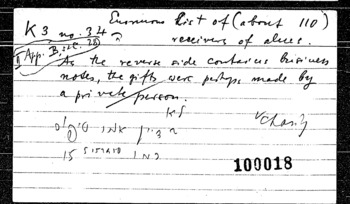 K 3 no. 34
Enormous List of (about 110)
receivers of alms.
App. B, sec. 28
As the reverse side contains business
notes, the gifts were perhaps made by
a private person.
Charity
15
100018